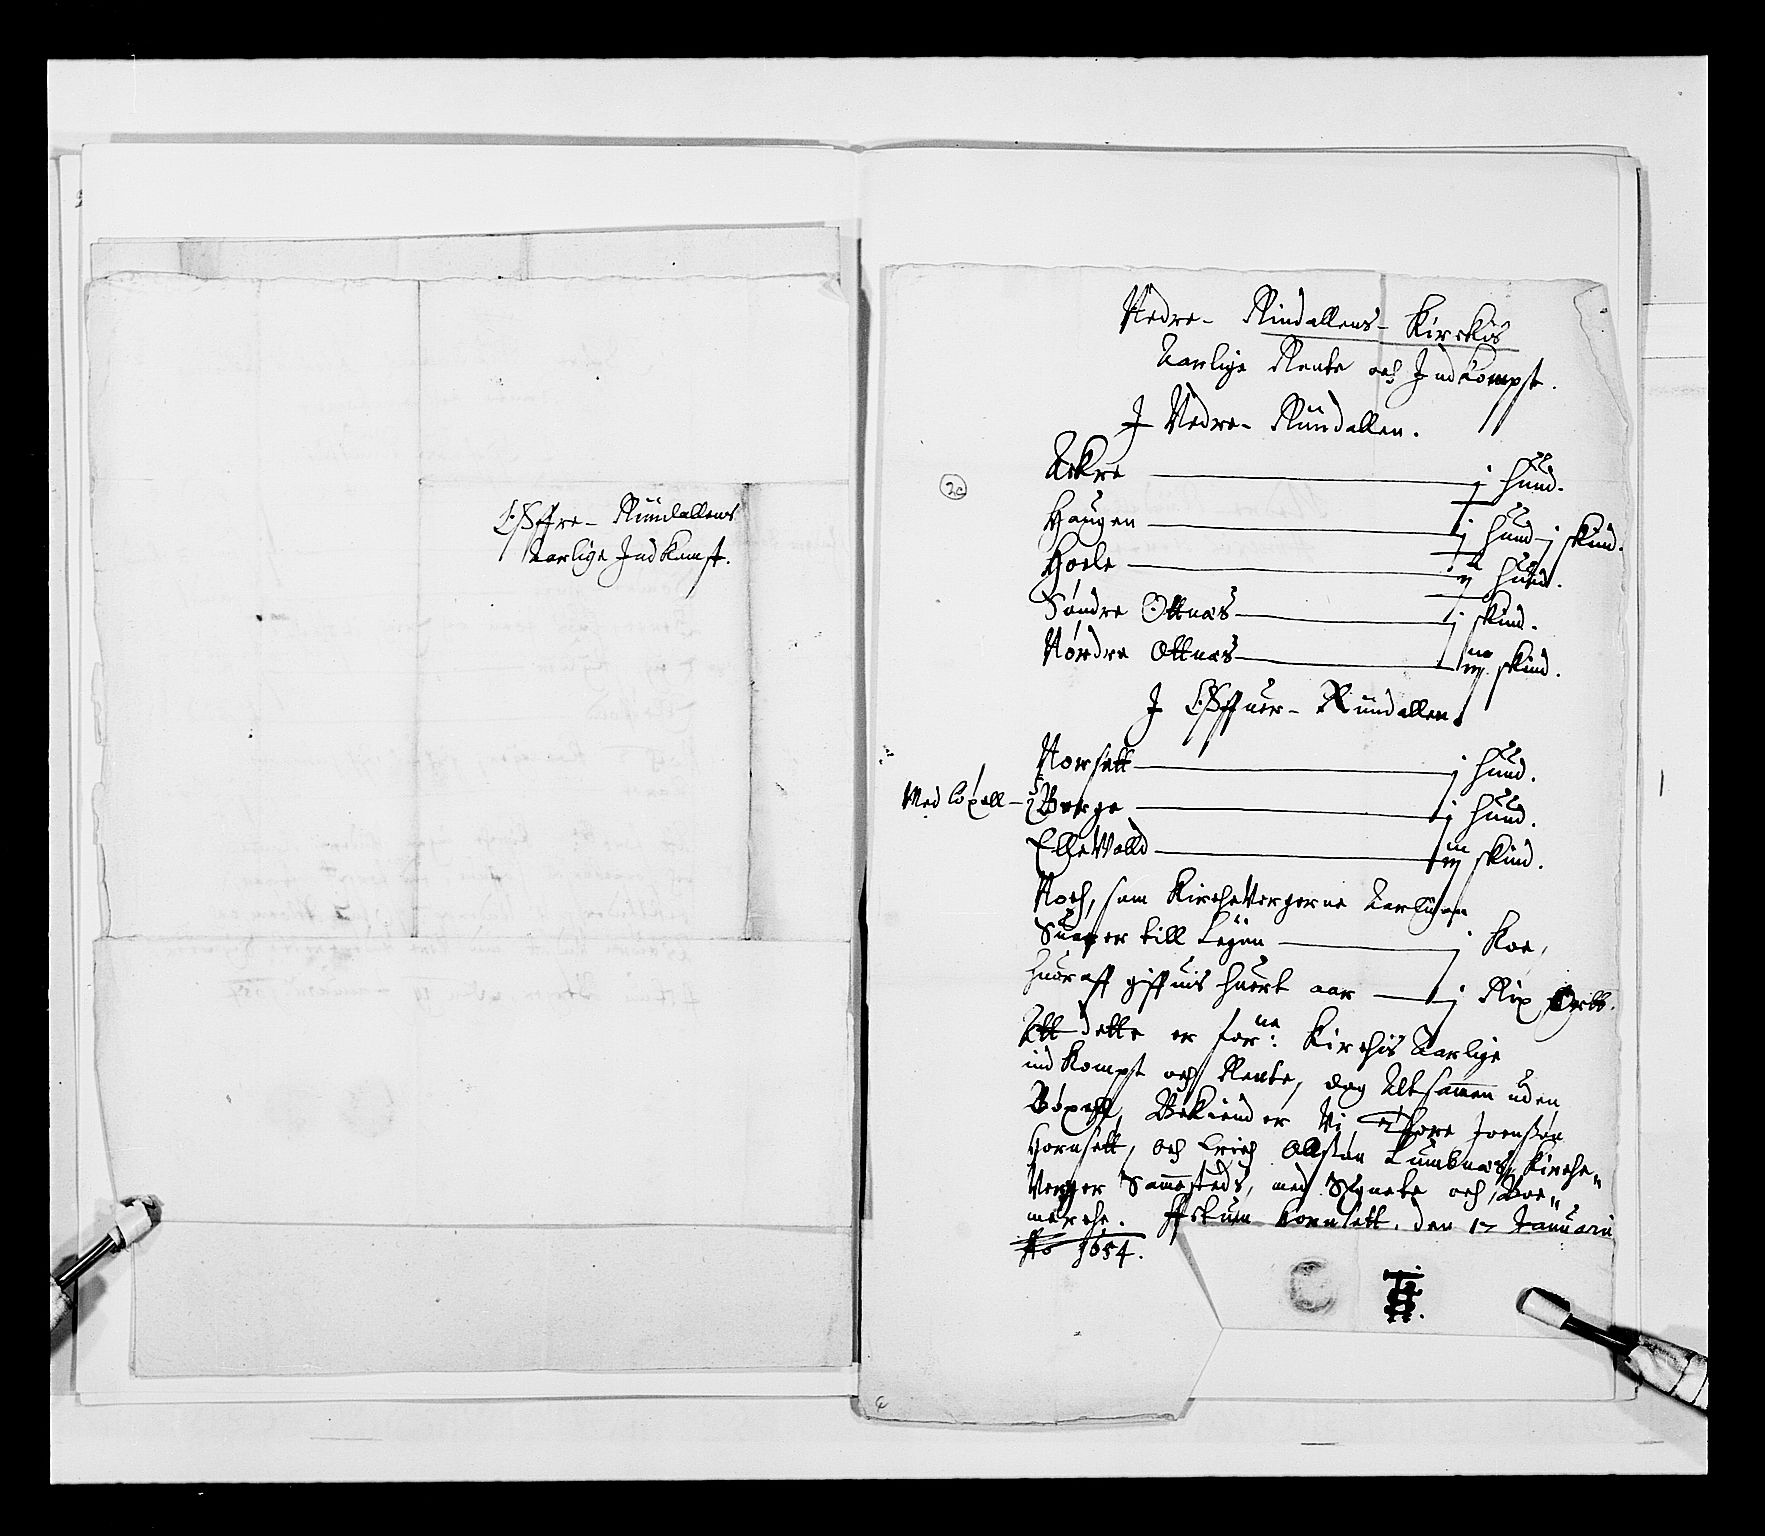 Øffre Rindallens
Aarlige Indkomst.
2c
Nedre Rindallens Kirckis
Aarlige Rente och Indkompst.
J Nedre Rindallen.
Ackre j hud.
Haugen j hud j skind.
Hoele ij hud.
Søndre Ottnæs j skind.
Nordre Ottnæs iij skind.
J Øffuer Rindallen
Norsett j hud.
Med böxell Berge j hud.
Elleuold iij skind.
Noch, som Kirckeuergerne Aarligen
Suarer till Legien j Koe,
huoraff giffuis huert aar j Rix Ortt.
Att dette er forne: Kirchis Aarlige
indkompst och Rente, dog Altsammen uden
Böxell, Bekiender Vi Thore Joenssøn
Hornsett, och Erich Olssøn Lumbnæs, Kirche-
Verger Sammesteds, med Signete och Boe-
merche. Actum Hornsett. den 17 Januarii
Ao 1654.